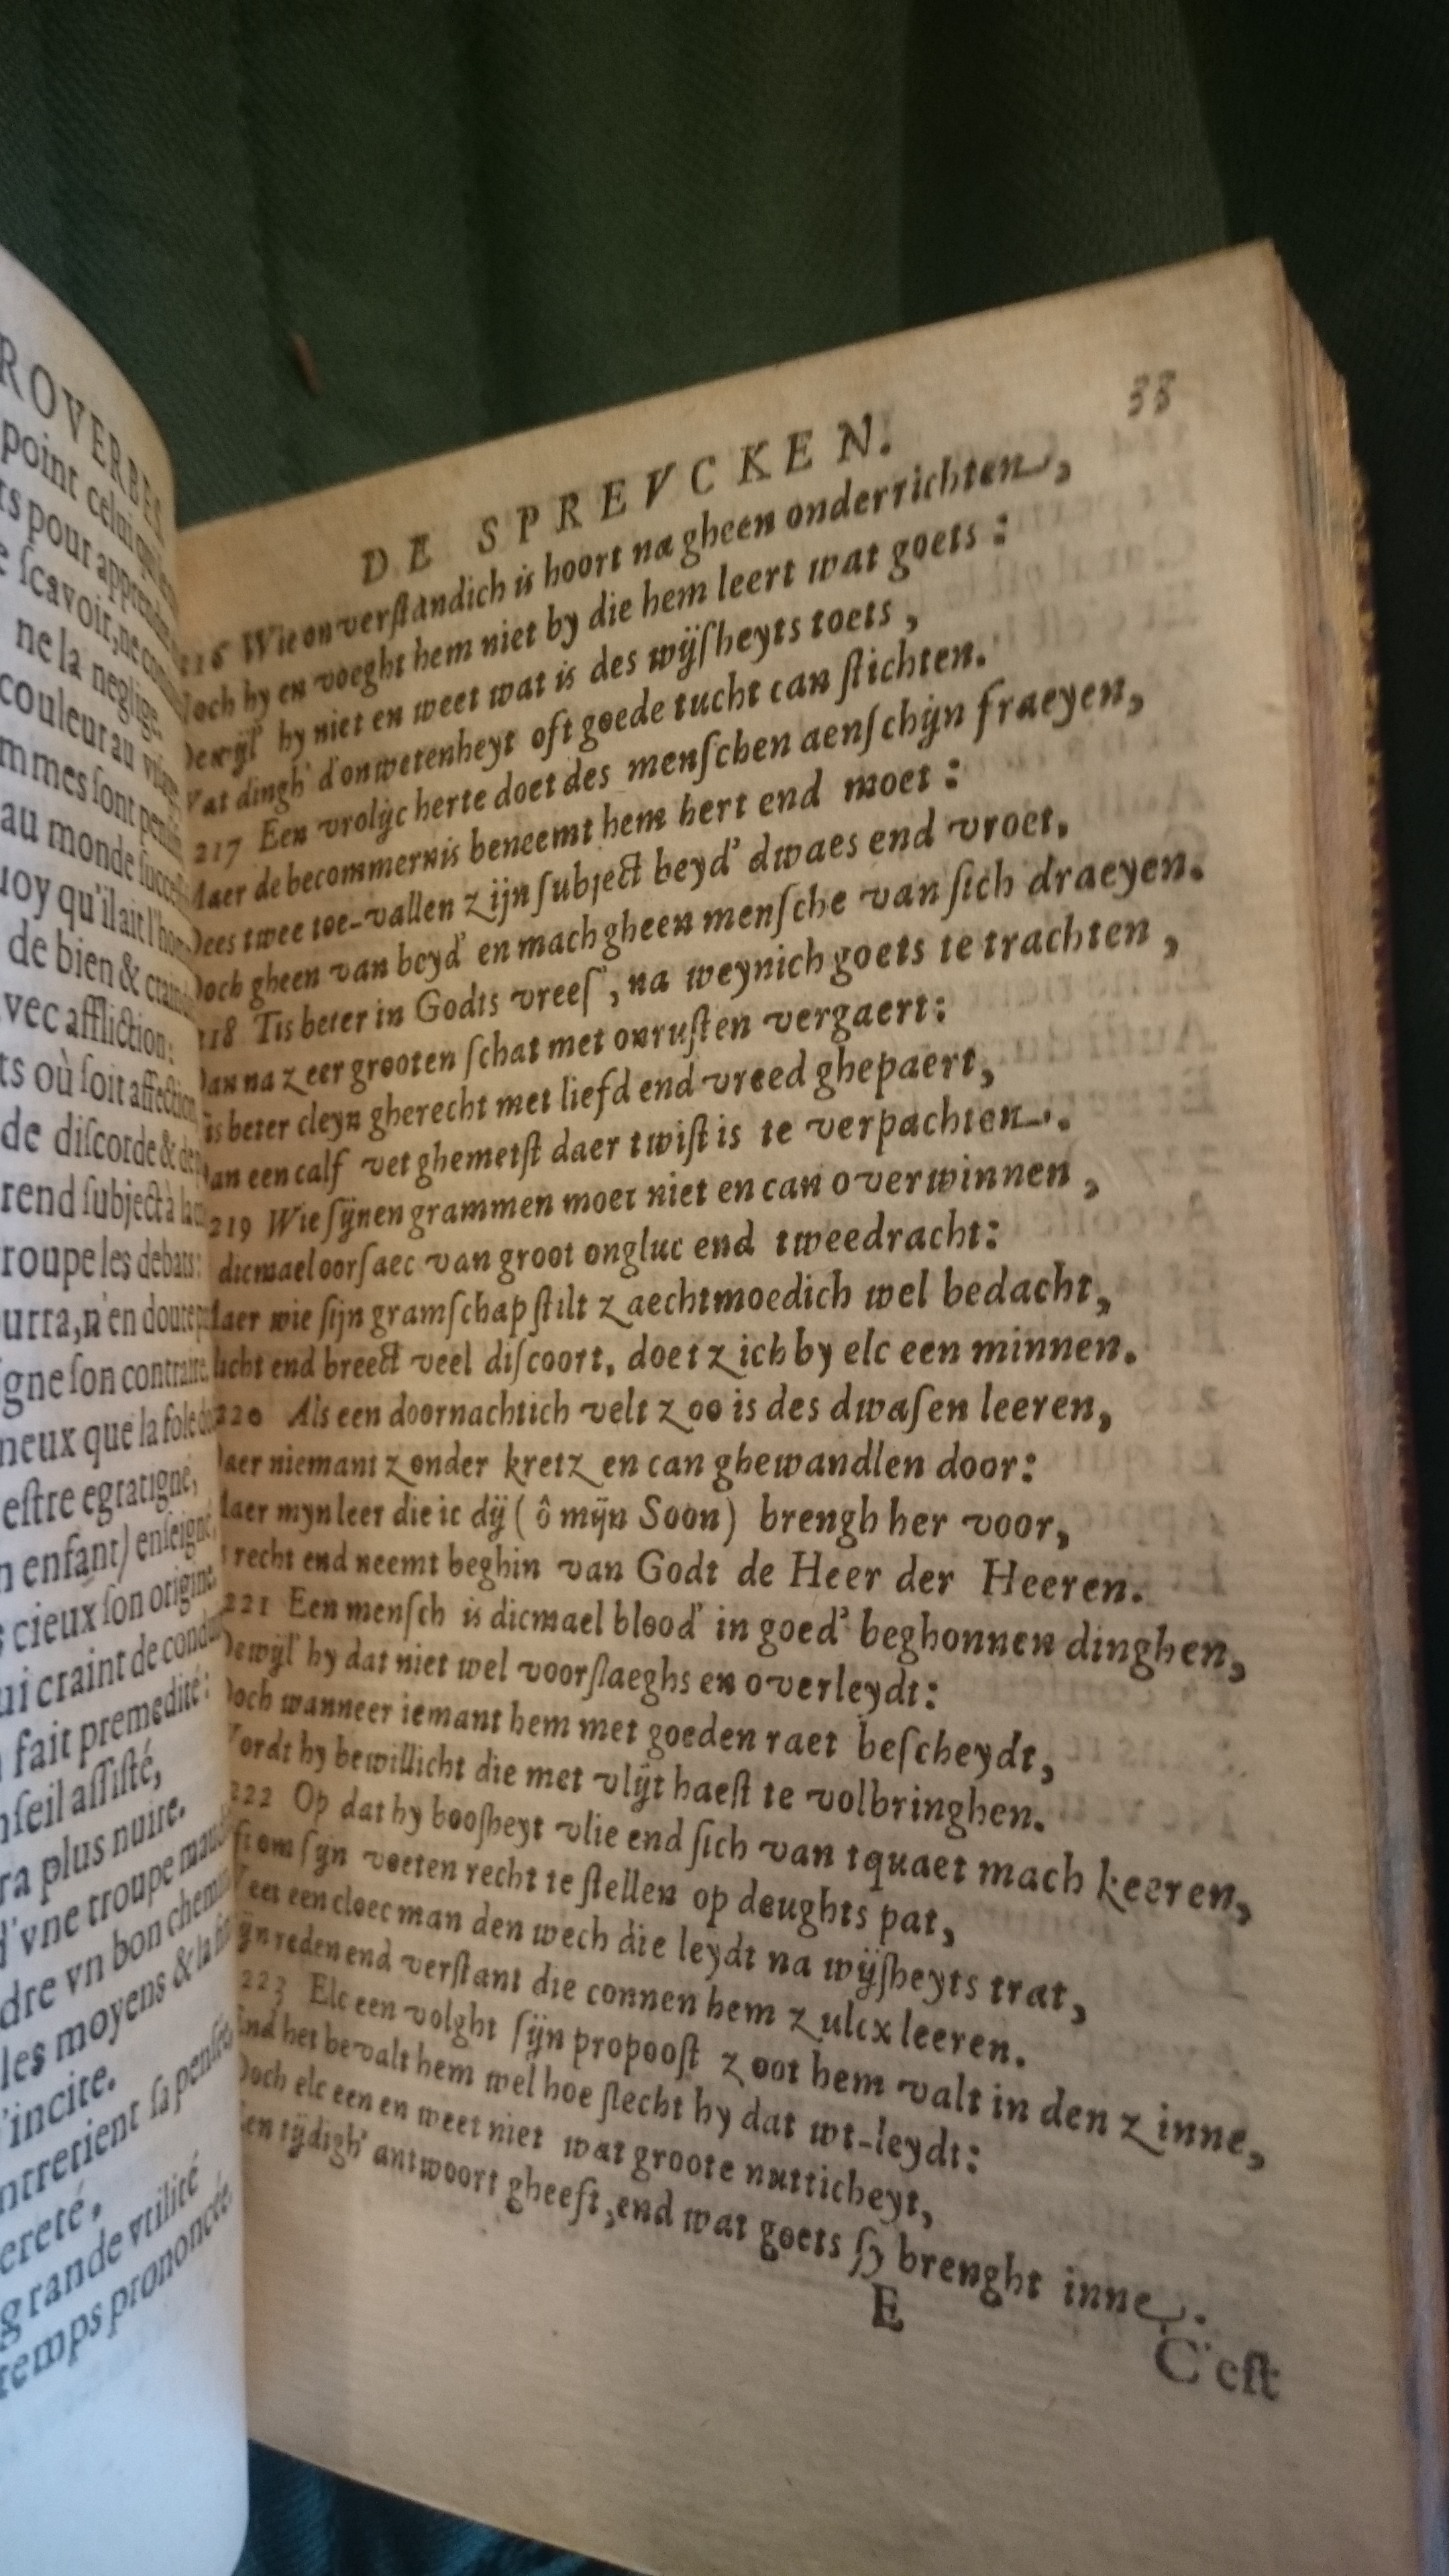 ROVERBES
point celui qui
ts pour apprendre
e ſcavoir, ne
ne la neglige.
couleur au
mmes ſont
au monde
uoy qu'il ait l'
de bien &
vec affliction:
ts où ſoit affection
de diſcorde &
rend ſubject à
roupe les debats:
urra, n'en doute
gne ſon contraire.
neux que la fole
eſtre egratigné,
n enfant) enſeigne
s cieux ſon origine.
ui craint de
fait premedité:
nſeil aſſiſté,
ra plus nuire.
d'vne troupe
dre vn bon
les moyens & la
'incite.
ntretient ſa
ereté.
grande vtilité
temps prononcée.
DE SPREVCKEN. 33
216 Wie onverſtandich is hoort na gheen onderrichten,
och hy en voeght hem niet by die hem leert wat goets:
Dewijl' hy niet en weet wat is des wijſheyts toets,
Wat dingh' d'onwetenheyt oft goede tucht can ſtichten.
217 Een vrolijc herte doet des menſchen aenſchijn fraeyen,
Maer de becommernis beneemt hem hert end moet:
Dees twee toe-vallen zijn ſubject beyd' dwaes end vroet,
Doch gheen van beyd' en mach gheen menſche van ſich draeyen.
218 Tis beter in Godts vreeſ', na weynich goets te trachten,
Dan na zeer grooten ſchat met onruſten vergaert:
is beter cleyn gherecht met liefd end vreed ghepaert,
an een calf vet ghemetſt daer twiſt is te verpachten.
219 Wie ſijnen grammen moet niet en can overwinnen,
dicmael oorſaec van groot ongluc end tweedracht:
Maer wie ſijn gramſchap ſtilt zaechtmoedich wel bedacht,
licht end breect veel diſcoort, doet zich by elc een minnen.
220 Als een doornachtich velt zoo is des dwaſen leeren,
Daer niemant zonder kretz en can ghewandlen door:
Maer mijn leer die ic dij (ô mijn Soon) brengh her voor,
recht end neemt beghin van Godt de Heer der Heeren.
221 Een menſch is dicmael blood' in goed' beghonnen dinghen,
Dewijl' hy dat niet wel voorſlaeghs en overleydt:
Doch wanneer iemant hem met goeden raet beſcheydt,
Wordt hy bewillicht die met vlijt haeſt te volbringhen.
222 Op dat hy booſheyt vlie end ſich van tquaet mach keeren,
ſt om ſijn voeten recht te ſtellen op deughts pat,
eet een cloec man den wech die leydt na wijſheyts trat,
ijn reden end verſtant die connen hem zulcx leeren.
223 Elc een volght ſijn propooſt zoot hem valt in den zinne,
End het bevalt hem wel hoe ſlecht hy dat wt-leydt:
Doch elc een en weet niet wat groote nutticheyt,
Een tijdigh' antwoort gheeft, end wat goets ſy brenght inne.
E
C'eſt